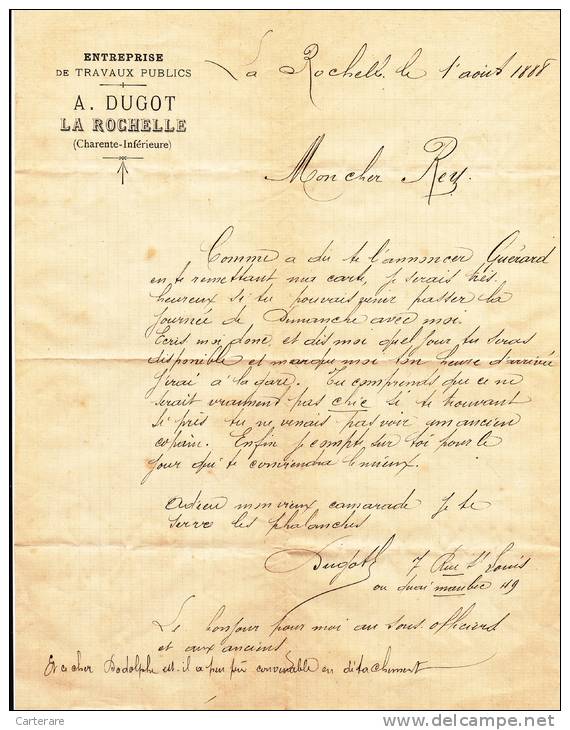 ENTREPRISE
DE TRAVAUX PUBLICS
A. DUGOT
LA ROCHELLE
(Charente-Inférieure)
La Rochelle, le 1 août 1888
Mon cher Rey.
Comme a dû te l'annoncer Guérard
en te remettant ma carte, je serais très
heureux si tu pouvais venir passer la
journée de Dimanche avec moi.
Ecris moi donc, et dis moi quel jour tu seras
disponible et marque moi ton heure d'arrivée
j'irai à la gare. Tu comprends que ce ne
serait vraiment pas chic si te trouvant
si près tu ne venais pas voir un ancien
copain. Enfin je compte sur toi pour le
jour qui te conviendra le mieux.
Adieu mon vieux camarade je te
serre les phalanches
Dugot
7 Rue St Louis
ou quai maubec 49
Le bonjour pour moi au sous officiers
et aux anciens
Et ce cher Rodolphe est-il a peu près convenable en détachement
Carterare
http://www.delcampe.net